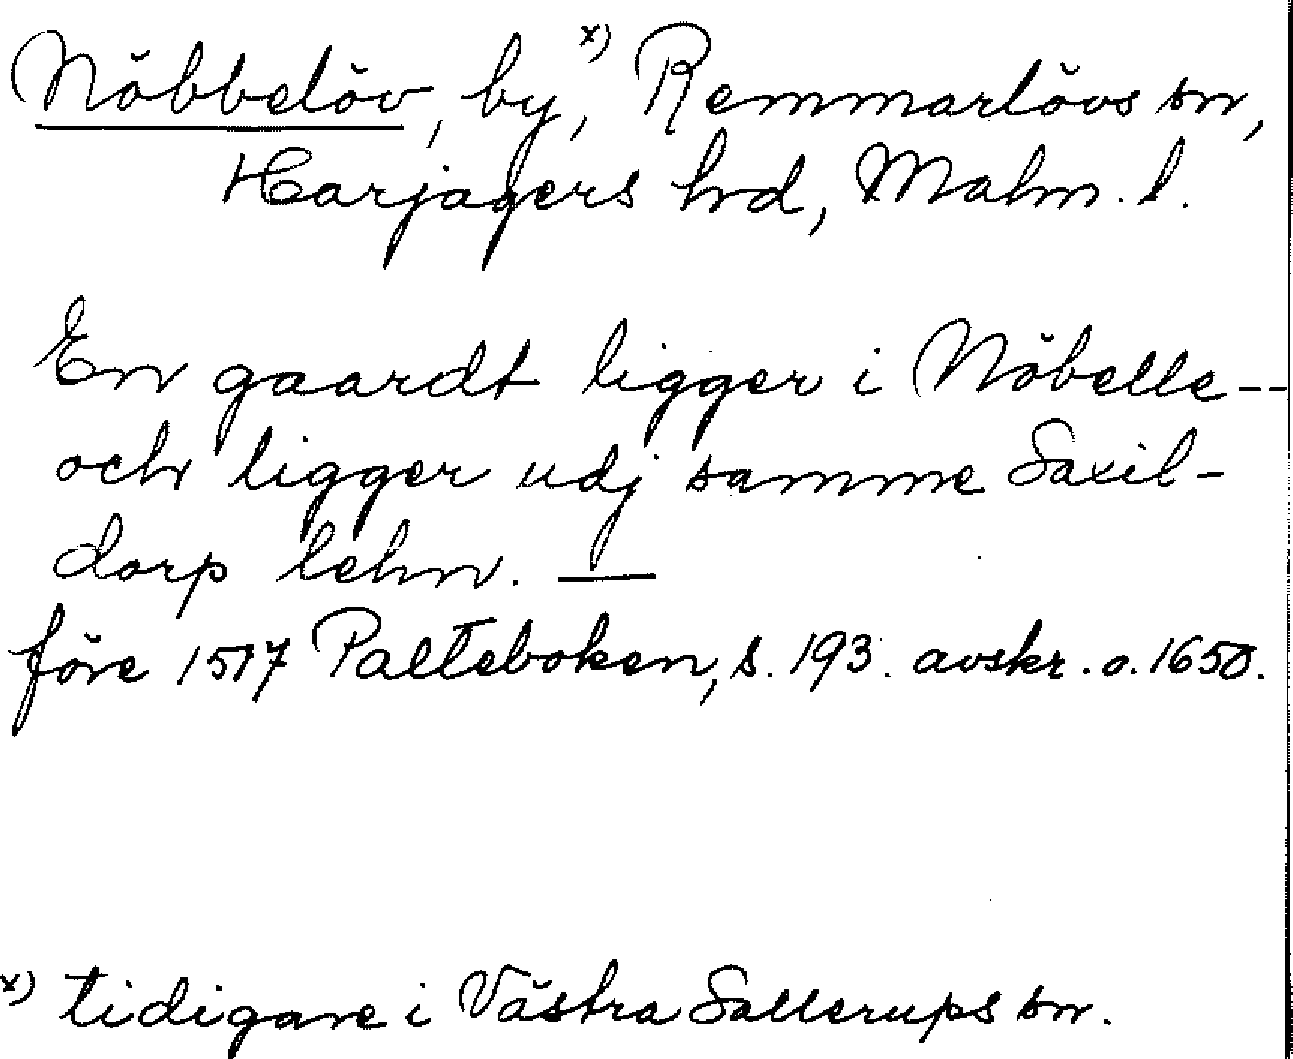 Nöbbelöv, by, x) Remmarlövs sn,
Harjagers hrd, Malm. l.
En gaardt ligger i Nöbelle --
och ligger udj samme Saxil-
dorp lehn. —
före 1517 Palteboken, s. 193. avskr. o. 1650.
x) tidigare i Västra Sallerups sn.